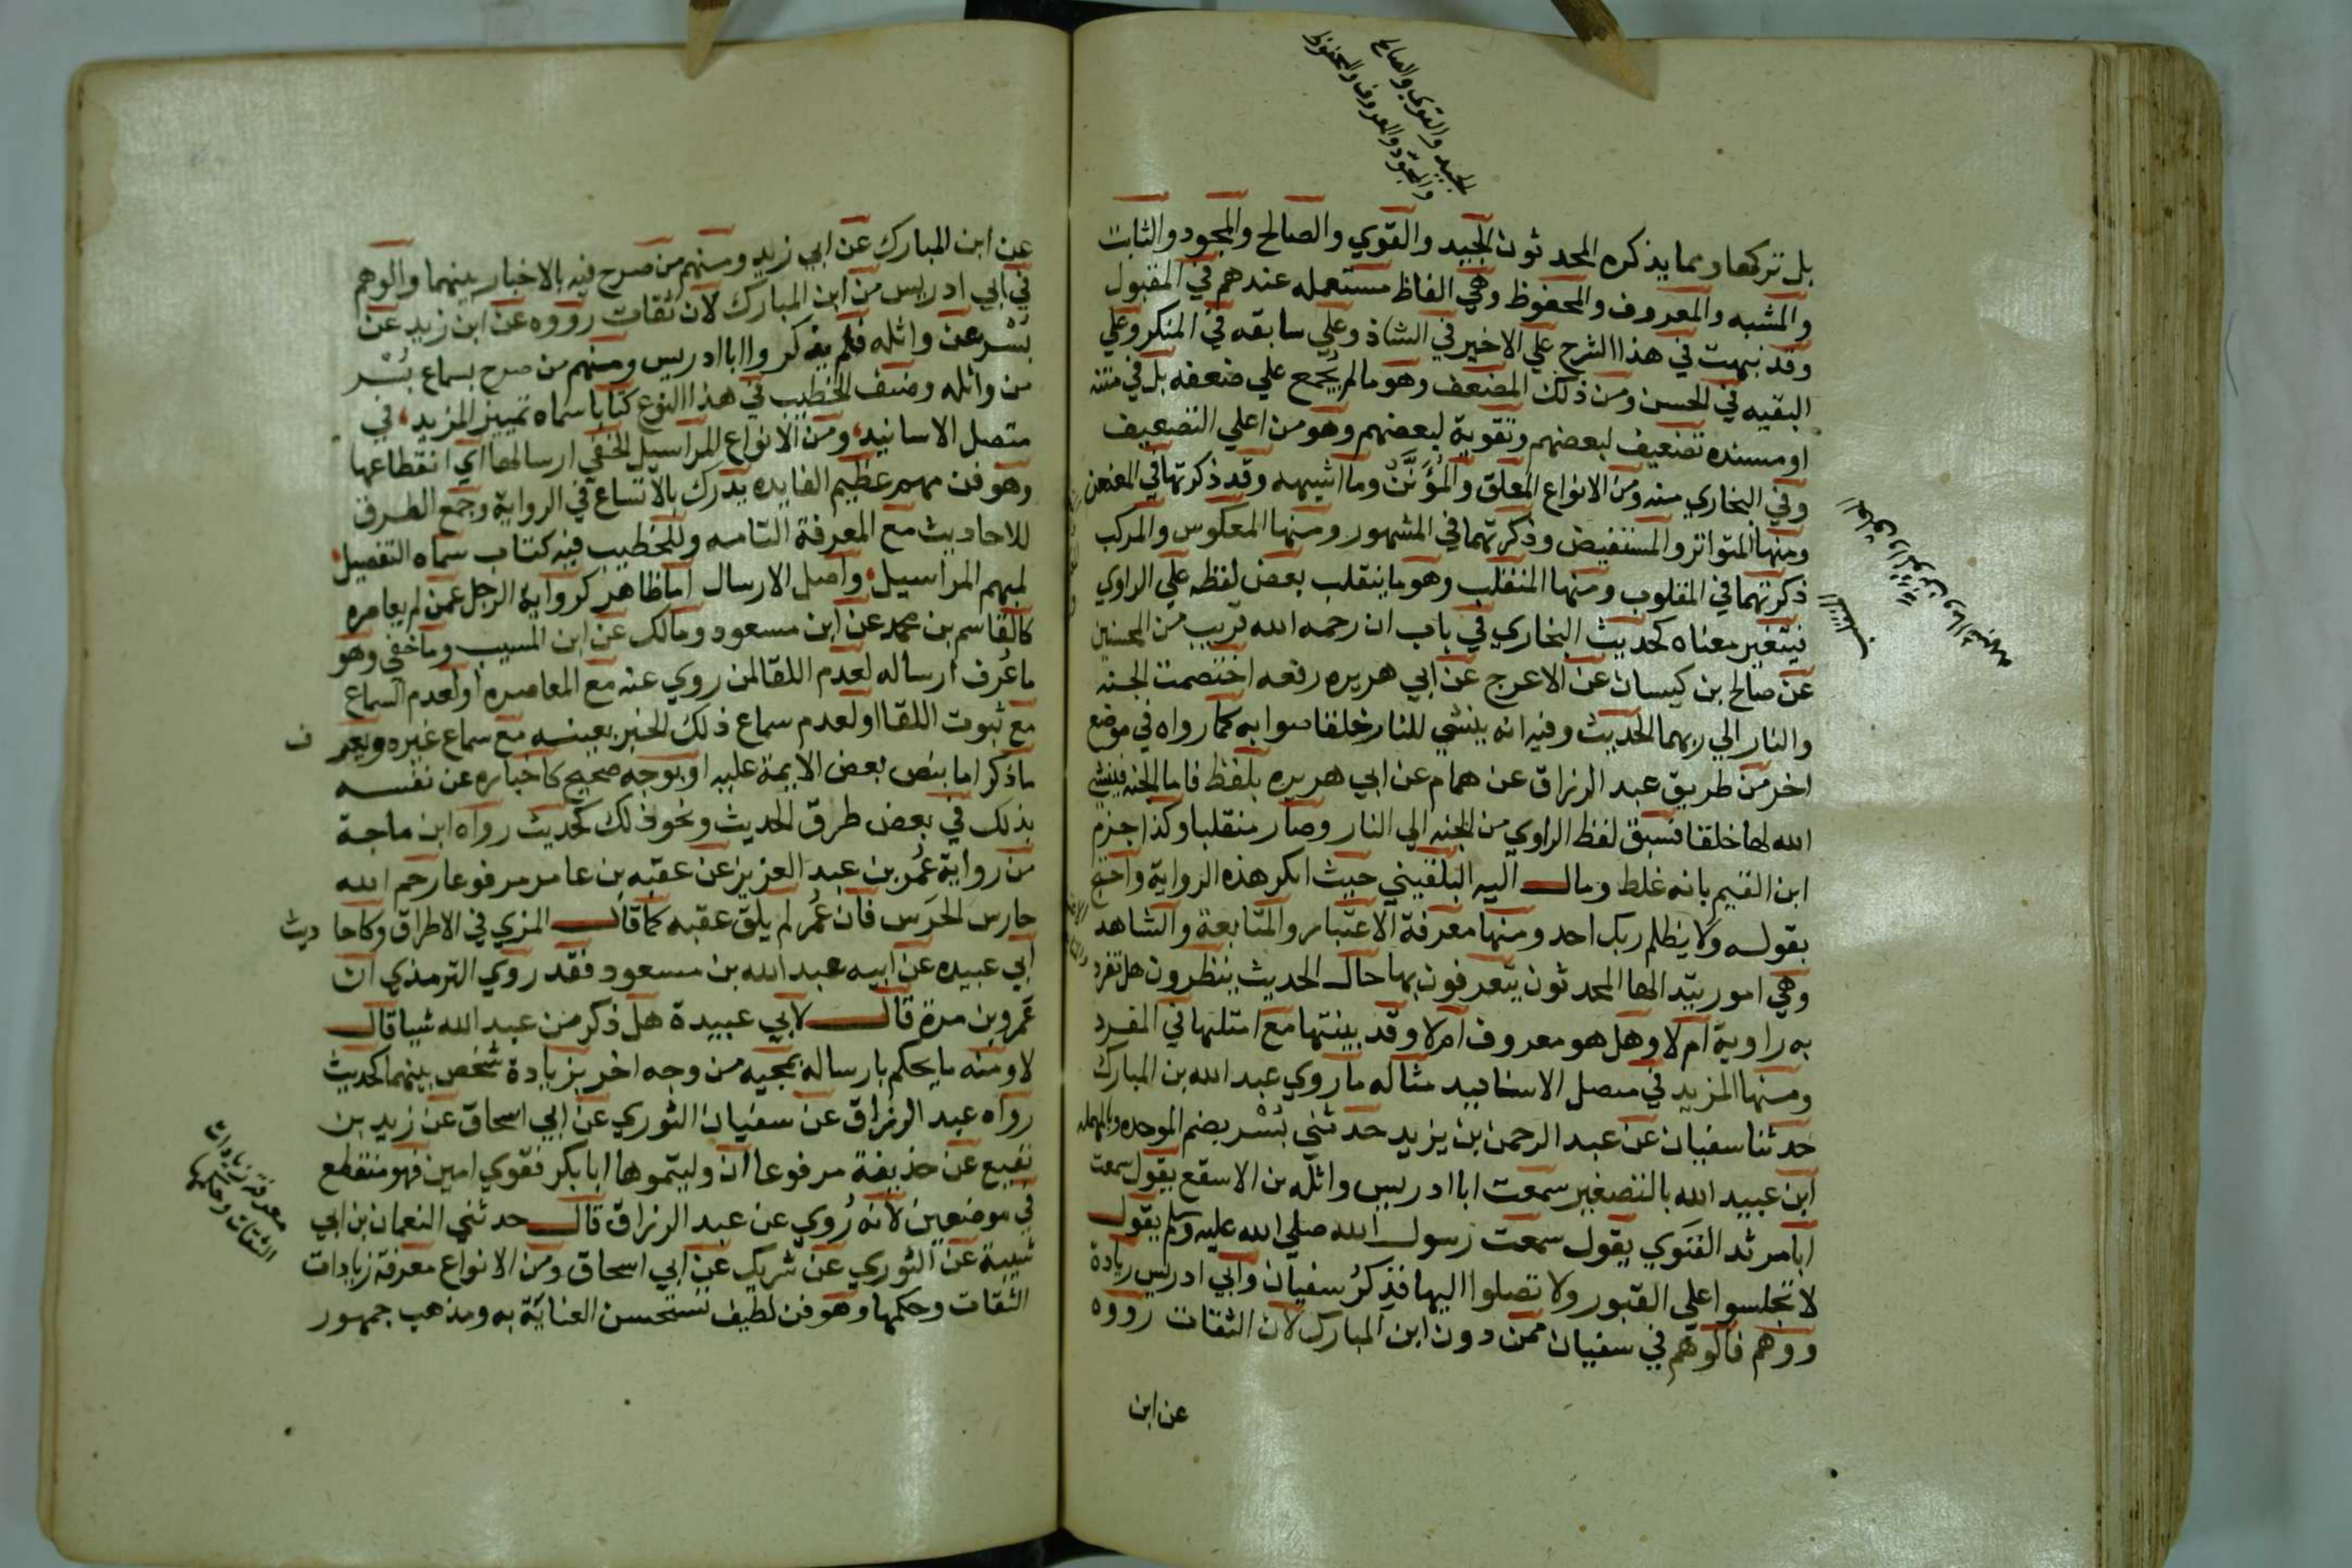 الجيد والقوي والصالح
والمجود والمعروف والمحفوظ
بل تركها ومما يذكره المحدثون الجيد والقوي والصالح والمجود والثابت
والمشبه والمعروف والمحفوظ وهي الفاظ مستعمله عندهم في المقبول
وقد نبهت في هذا الشرح علي الاخير في الشاذ وعلي سابقه في المنكر وعلي
البقيه في الحسن ومن ذلك المضعف وهو مالم يجمع علي ضعفه بل في متنه
او مسنده تضعيف لبعضهم وتقوية لبعضهم وهو من اعلي التضعيف
وفي البخاري منه ومن الانواع المعلق والمؤنن وما اشبهه وقد ذكرتها في المعنعن
ومنها المتواتر والمستفيض وذكرتهما في المشهور ومنها المعكوس والمركب
ذكرتهما في المقلوب ومنها المنقلب وهو ما ينقلب بعض لفظه علي الراوي
فيتغير معناه كحديث البخاري في باب ان رحمه الله قريب من المحسنين
عن صالح بن كيسان عن الاعرج عن ابي هريره رفعه اختصمت الجنه
والنار الي ربهما الحديث وفيه انه ينشي للنار خلقا صوابه كما رواه في موضع
اخر من طريق عبد الرزاق عن همام عن ابي هريره بلفظ فاما الجنه فينشي
الله لها خلقا فسبق لفظ الراوي من الجنه الي النار وصار منقلبا وكذا جزم
ابن القيم بانه غلط ومال اليه البلقيني حيث انكر هذه الرواية واحتج
بقوله ولا يظلم ربك احد ومنها معرفة الاعتبار والمتابعة والشاهد
وهي امور يتد الها المحدثون يتعرفون بها حال الحديث ينظرون هل تفرد
به راويه ام لا وهل هو معروف ام لا وقد بينتها مع امثلتها في المفرد
ومنها المزيد في متصل الاسانيد مثاله ما روي عبد الله بن المبارك
حدثنا سفيان عن عبد الرحمن بن يزيد حدثني بسر بضم الموحده والمهمله
ابن عبيد الله بالتصغير سمعت ابا ادريس واثله بن الاسقع يقول سمعت
ابا مرثد الغنوي يقول سمعت رسول الله صلي الله عليه وسلم يقول
لا تجلسوا علي القبور ولا تصلوا اليها فذكر سفيان وابي ادريس زيادة
ووهم فالوهم في سفيان ممن دون ابن المبارك لان الثقات رووه
عن ابن
عن ابن المبارك عن ابي زيد ومنهم من صرح فيه بالاخبار بينهما والوهم
في ابي ادريس من ابن المبارك لان ثقات رووه عن ابن زيد عن
بسر عن واثله فلم يذكروا ابا ادريس ومنهم من صرح بسماع بسر
من واثله وصنف الخطيب في هذا النوع كتابا سماه تمييز المزيد، في
متصل الاسانيد، ومن الانواع المراسيل الخفي ارسالها اي انقطاعها
وهو فن مهم عظيم الفايده يدرك بالاتساع في الرواية وجمع الطرق
للاحاديث مع المعرفة التامه وللخطيب فيه كتاب سماه التفصيل،
لمبهم المراسيل، واصل الارسال اما ظاهر كرواية الرجل عمن لم يعاصره
كالقاسم بن محمد عن ابن مسعود ومالك عن ابن المسيب وما خفي وهو
ما عرف ارساله لعدم اللقا لمن روي عنه مع المعاصره او لعدم السماع
مع ثبوت اللقا او لعدم سماع ذلك الخبر بعينه مع سماع غيره ويعر ف
ماذكر اما بنص بعض الايمة عليه او بوجه صحيح كاخباره عن نفسه
بذلك في بعض طرق الحديث ونحو ذلك كحديث رواه ابن ماجة
من رواية عمر بن عبد العزيز عن عقبه بن عامر مرفوعا رحم الله
حارس الحرس فان عمر لم يلق عقبه كما قال المزي في الاطراف وكاحا ديث
ابي عبيده عن ابيه عبد الله بن مسعود فقد روي الترمذي ان
عمرو بن مرة قال لابي عبيدة هل ذكر من عبد الله شيا قال
لا ومنه ما يحكم بارساله بمجيه من وجه اخر بزيادة شخص بينهما كحديث
رواه عبد الرزاق عن سفيان الثوري عن ابي اسحاق عن زيد بن
نفيع عن حذيفة مرفوعا ان وليتموها ابا بكر فقوي امين فهو منقطع
في موضعين لانه روي عن عبد الرزاق قال حدثني النعمان بن ابي
شيبة عن الثوري عن شريك عن ابي اسحاق ومن الانواع معرفة زيادات
الثقات وحكمها وهو فن لطيف تستحسن العناية به ومذهب جمهور
معرفة زيادات
الثقات وحكمها